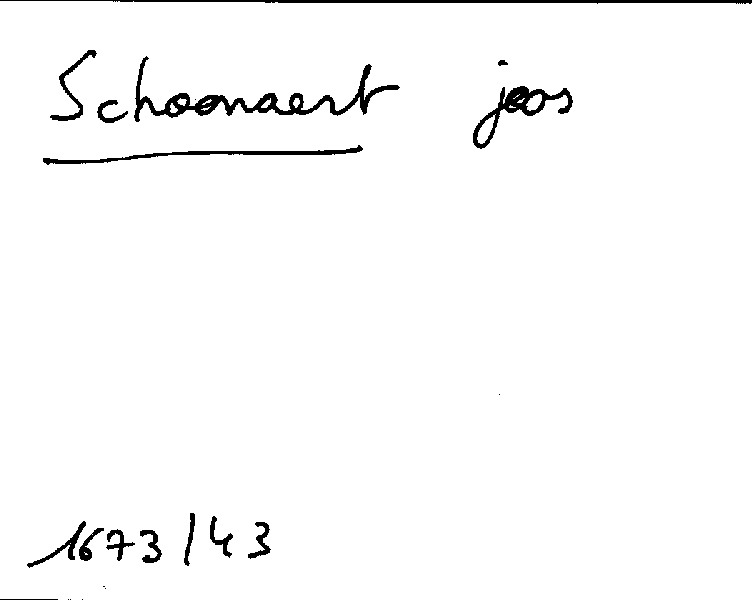 Schoonaert joos
1673/43